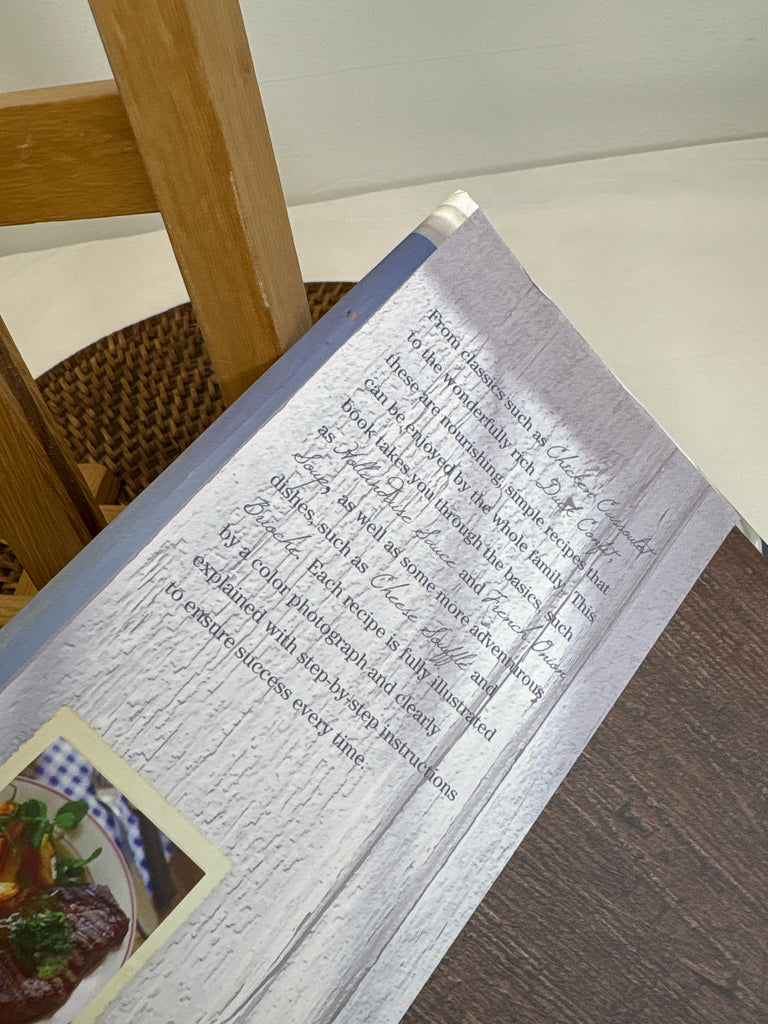 From classics such as Chicken Cassoulet
to the wonderfully rich Duck Confit,
these are nourishing, simple recipes that
can be enjoyed by the whole family. This
book takes you through the basics, such
as Hollandaise Sauce and French Onion
Soup, as well as some more adventurous
dishes, such as Cheese Soufflé and
Brioche. Each recipe is fully illustrated
by a color photograph and clearly
explained with step-by-step instructions
to ensure success every time.